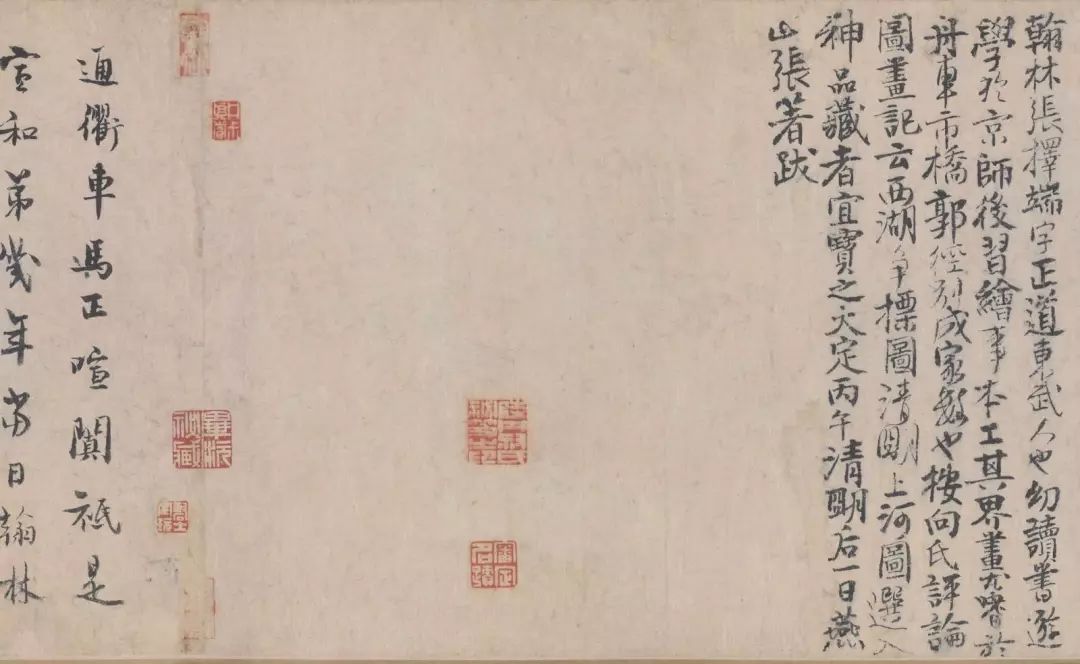 翰林張擇端字正道東武人也幼讀書遊
學於京師後習繪事本工其界畫尤嗜於
舟車市橋郭徑別成家數也按向氏評論
圖畫記云西湖爭標圖清明上河圖選入
神品藏者宜寶之大定丙午清明后一日燕
山張著跋
通衢車馬正喧闐祇是
宣和第幾年當日翰林